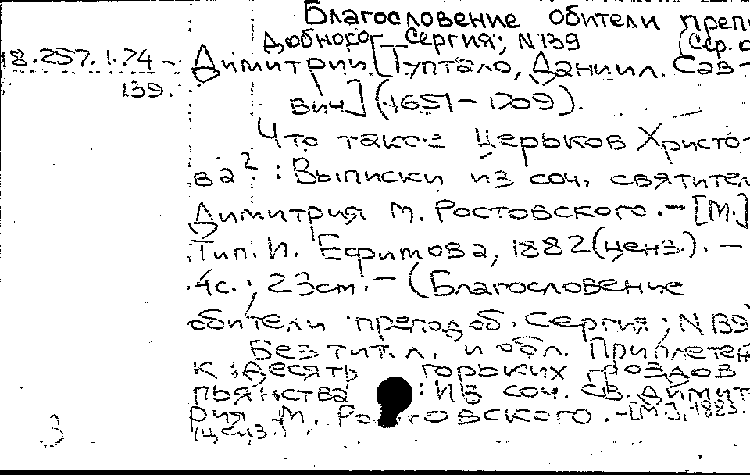 Благословение обители преп
добного Сергия; N139 (Сер. с
18.257.1.74- Димитрий [Туптало, Даниил. Сав-
139. вич] (1651-1709).
Что такое Церьков Христо-
ва?: Выписки из соч. святител
Димитрия М. Ростовского. - [М.]
Тип. И. Ефимова, 1882 (ценз.). -
4с.; 23см. - (Благословение
обители преподоб. Сергия; N139
Без тит. л. и обл. Приплетен
к: Десять горьких гроздов
пьянства: Из соч. св. Димит
рия М. Ростовского. - [М.], 1883.
(ценз.)
3